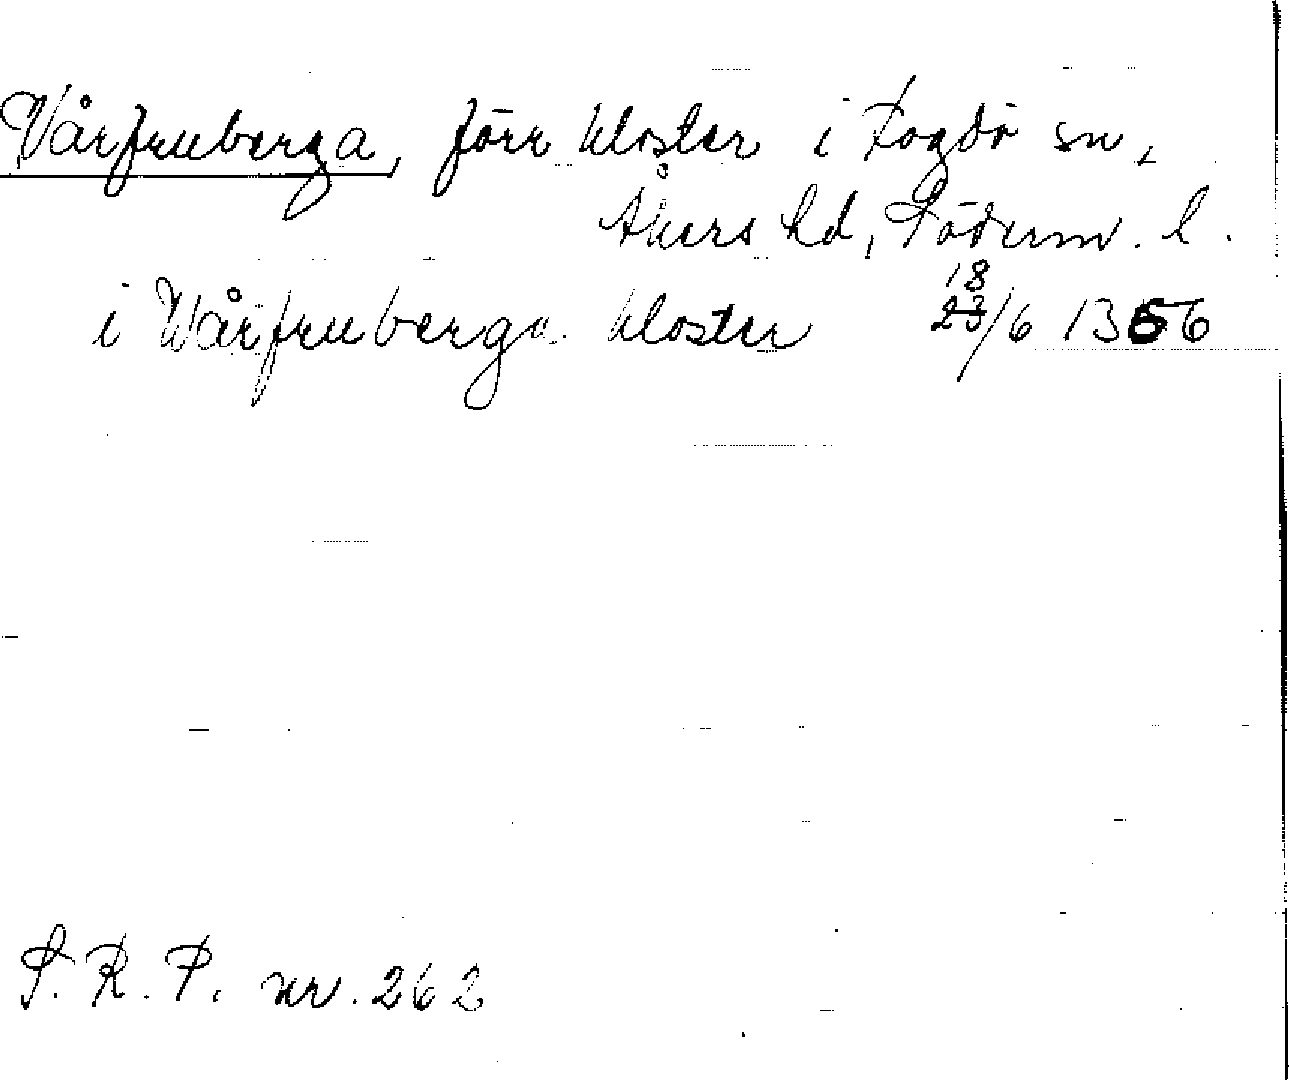 Vårfruberga, förr kloster i Fogdö sn,
Åkers hd, Söderm. l.
i Wårfruberga kloster 18 23/6 1356
S. R. P. nr. 262